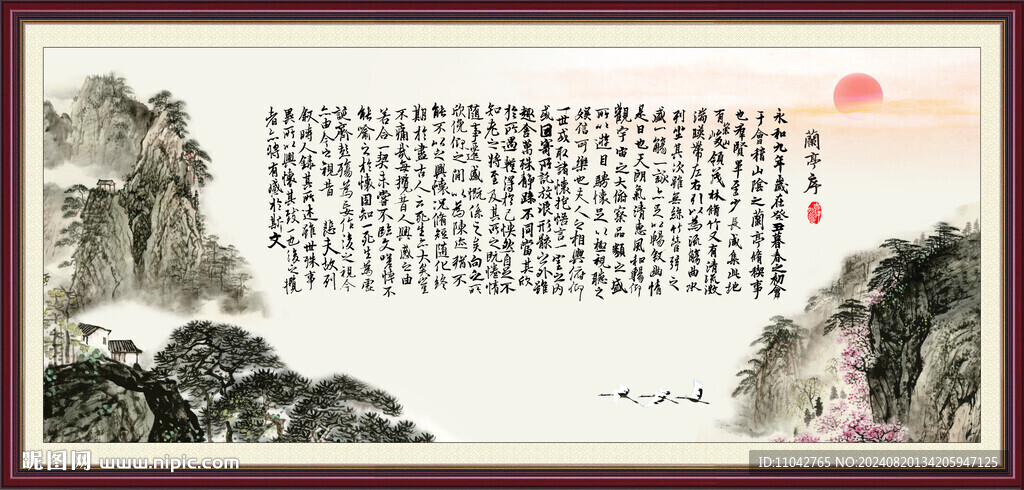 蘭亭序
永和九年歲在癸丑暮春之初會
于會稽山陰之蘭亭脩稧事
也羣賢畢至少長咸集此地
有崇山峻領茂林脩竹又有清流激
湍暎帶左右引以為流觴曲水
列坐其次雖無絲竹管弦之
盛一觴一詠亦足以暢敘幽情
是日也天朗氣清惠風和暢仰
觀宇宙之大俯察品類之盛
所以遊目騁懷足以極視聽之
娛信可樂也夫人之相與俯仰
一世或取諸懷抱悟言一室之內
或因寄所託放浪形骸之外雖
趣舍萬殊靜躁不同當其欣
於所遇暫得於己快然自足不
知老之將至及其所之既惓情
隨事遷感慨係之矣向之所
欣俛仰之閒以為陳迹猶不
能不以之興懷況脩短隨化終
期於盡古人云死生亦大矣豈
不痛哉每攬昔人興感之由
若合一契未嘗不臨文嗟悼不
能喻之於懷固知一死生為虛
誕齊彭殤為妄作後之視今
亦由今之視昔 悲夫故列
敘時人錄其所述雖世殊事
異所以興懷其致一也後之攬
者亦將有感於斯文
昵图网 www.nipic.com
ID:11042765 NO:20240820134205947125